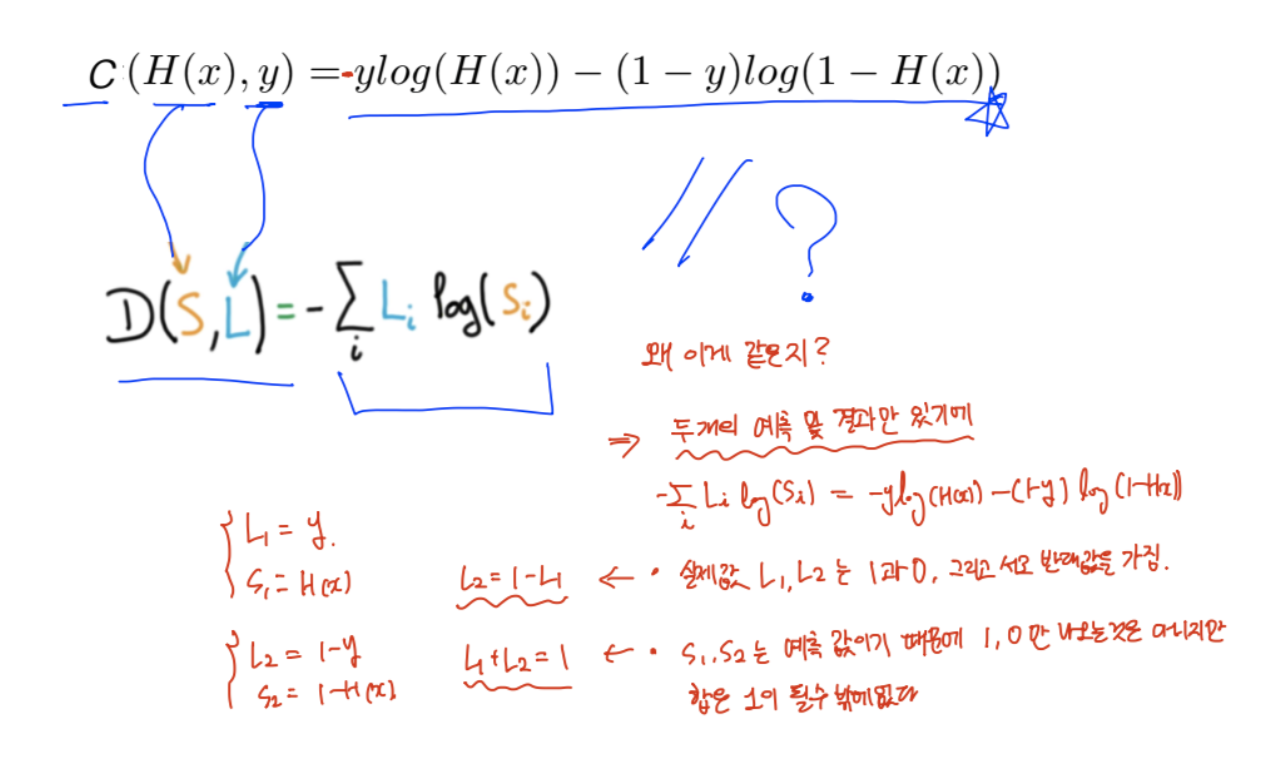 C (H(x), y) = -ylog(H(x)) − (1 − y)log(1 − H(x))
?
D(S,L) = - Σi Li log(Si)
왜 이게 같은지?
⇒ 두개의 예측 및 결과만 있기에
-Σi Li log(Si) = -ylog(H(x)) -(1-y) log(1-H(x))
L1 = y.
S1 = H(x)
L2 = 1-L1 ← • 실제값 L1, L2 는 1과 0, 그리고 서로 반대값을 가짐.
L2 = 1-y
S2 = 1-H(x)
L1+L2 = 1 ← • S1, S2 는 예측 값이기 때문에 1, 0만 나오는것은 아니지만
합은 1이 될수 밖에없다